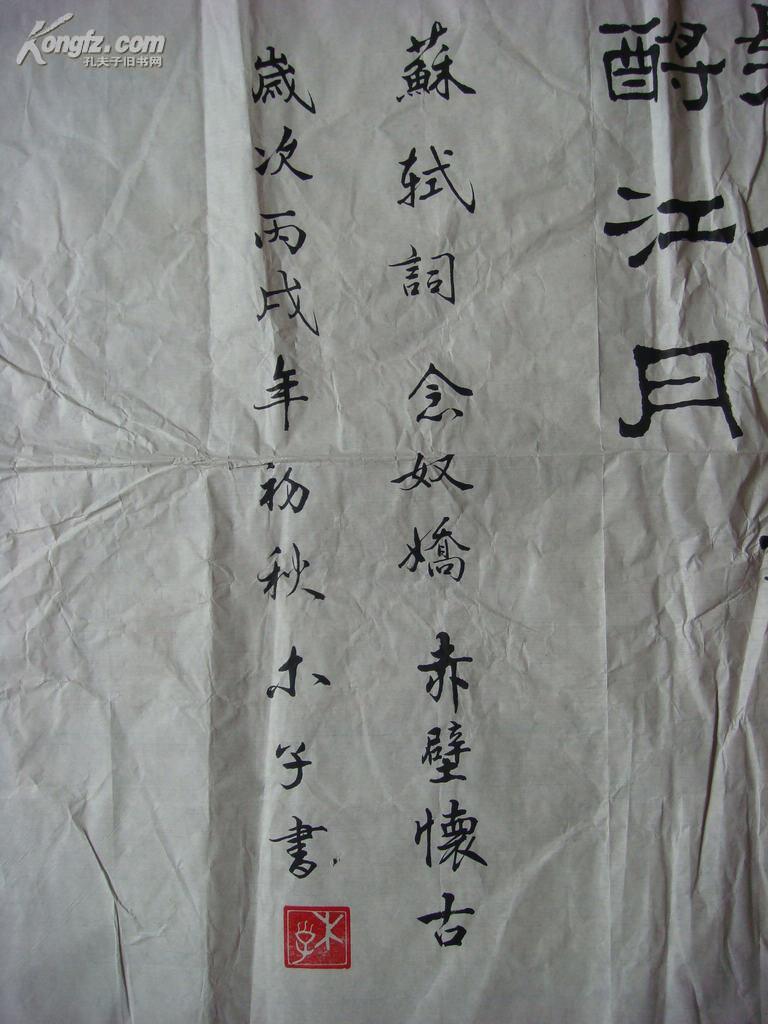 酹江月
蘇軾詞 念奴嬌 赤壁懷古
歲次丙戌年初秋 木子書
木子
Kongfz.com
孔夫子旧书网